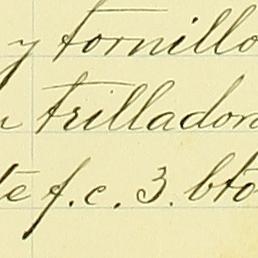 y tornillo
trilladora
te f. c. 3. bto